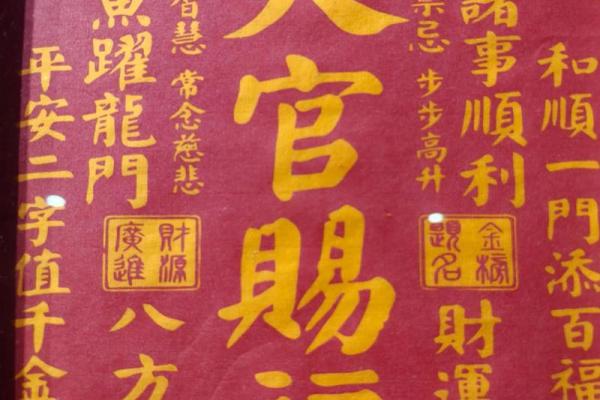 和順一門添百福
諸事順利
金榜題名
財運
禁忌 步步高升
天官賜福
智慧 常念慈悲
魚躍龍門
財源廣進
八方
平安二字值千金